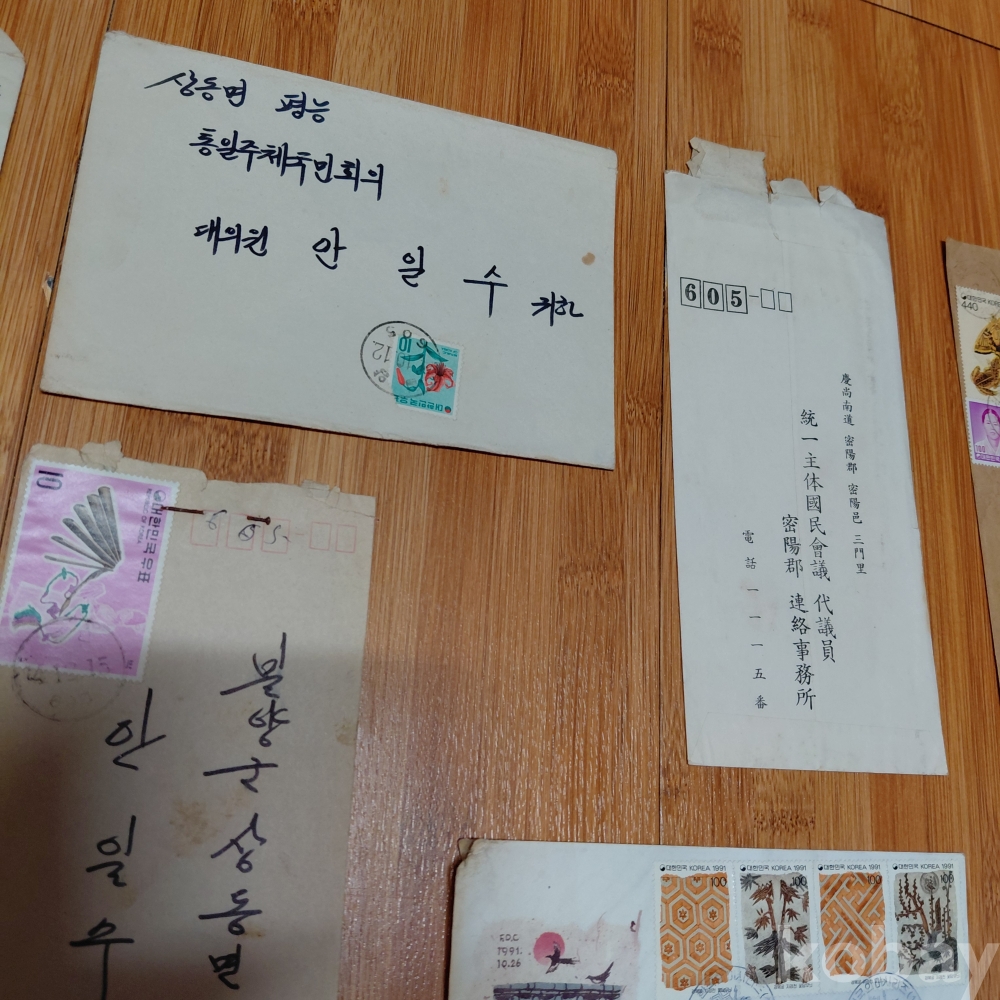 상동면 평능
통일주체국민회의
대의원 안 일 수 귀하
10
대한민국우표
12
605-
慶尚南道 密陽郡 密陽邑 三門里
統一主体國民會議 代議員
密陽郡 連絡事務所
電話一一一五番
대한민국
440
10
대한민국우표
605-
밀양군 상동면
안 일 수
대한민국 KOREA 1991
100
대한민국 KOREA 1991
100
대한민국 KOREA 1991
100
대한민국 KOREA 1991
100
F.D.C
1991.
10.26
kobay